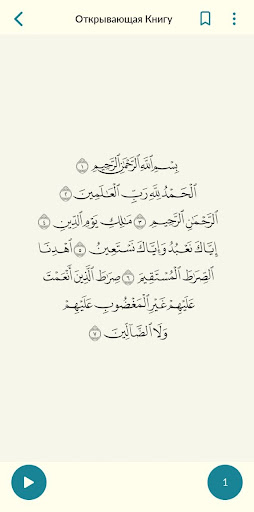 Открывающая Книгу
بِسْمِ ٱللَّهِ ٱلرَّحْمَٰنِ ٱلرَّحِيمِ ١
ٱلْحَمْدُ لِلَّهِ رَبِّ ٱلْعَٰلَمِينَ ٢
ٱلرَّحْمَٰنِ ٱلرَّحِيمِ ٣ مَٰلِكِ يَوْمِ ٱلدِّينِ ٤
إِيَّاكَ نَعْبُدُ وَإِيَّاكَ نَسْتَعِينُ ٥ ٱهْدِنَا
ٱلصِّرَٰطَ ٱلْمُسْتَقِيمَ ٦ صِرَٰطَ ٱلَّذِينَ أَنْعَمْتَ
عَلَيْهِمْ غَيْرِ ٱلْمَغْضُوبِ عَلَيْهِمْ
وَلَا ٱلضَّآلِّينَ ٧
1